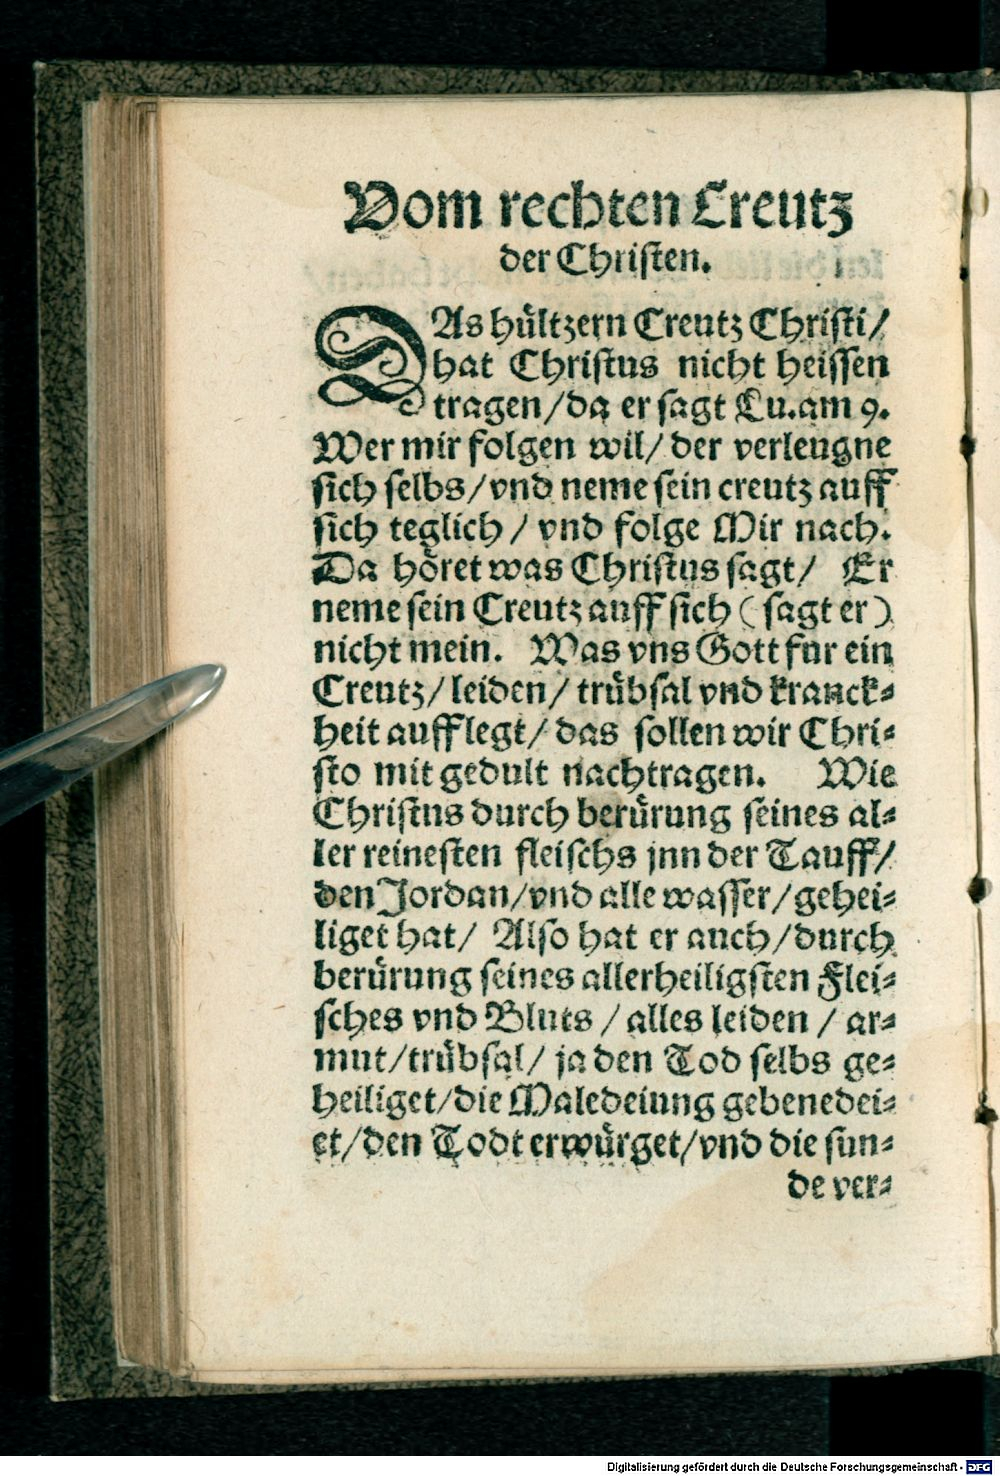 Vom rechten Creutz
der Christen.
DAs hültzern Creutz Christi/
hat Christus nicht heissen
tragen/da er sagt Lu.am 9.
Wer mir folgen wil/ der verleugne
sich selbs/vnd neme sein creutz auff
sich teglich/ vnd folge Mir nach.
Da höret was Christus sagt/ Er
neme sein Creutz auff sich (sagt er)
nicht mein. Was vns Gott fur ein
Creutz/ leiden/ trübsal vnd kranck-
heit aufflegt/ das sollen wir Chri-
sto mit gedult nachtragen. Wie
Christus durch berürung seines al-
ler reinesten fleischs jnn der Tauff/
den Jordan/vnd alle wasser/gehei-
liget hat/ Also hat er auch/durch
berürung seines allerheiligsten Flei-
sches vnd Bluts/alles leiden/ ar-
mut/trübsal/ ja den Tod selbs ge-
heiliget/die Maledeiung gebenedei-
et/den Todt erwürget/vnd die sun-
de ver-
Digitalisierung gefördert durch die Deutsche Forschungsgemeinschaft - DFG